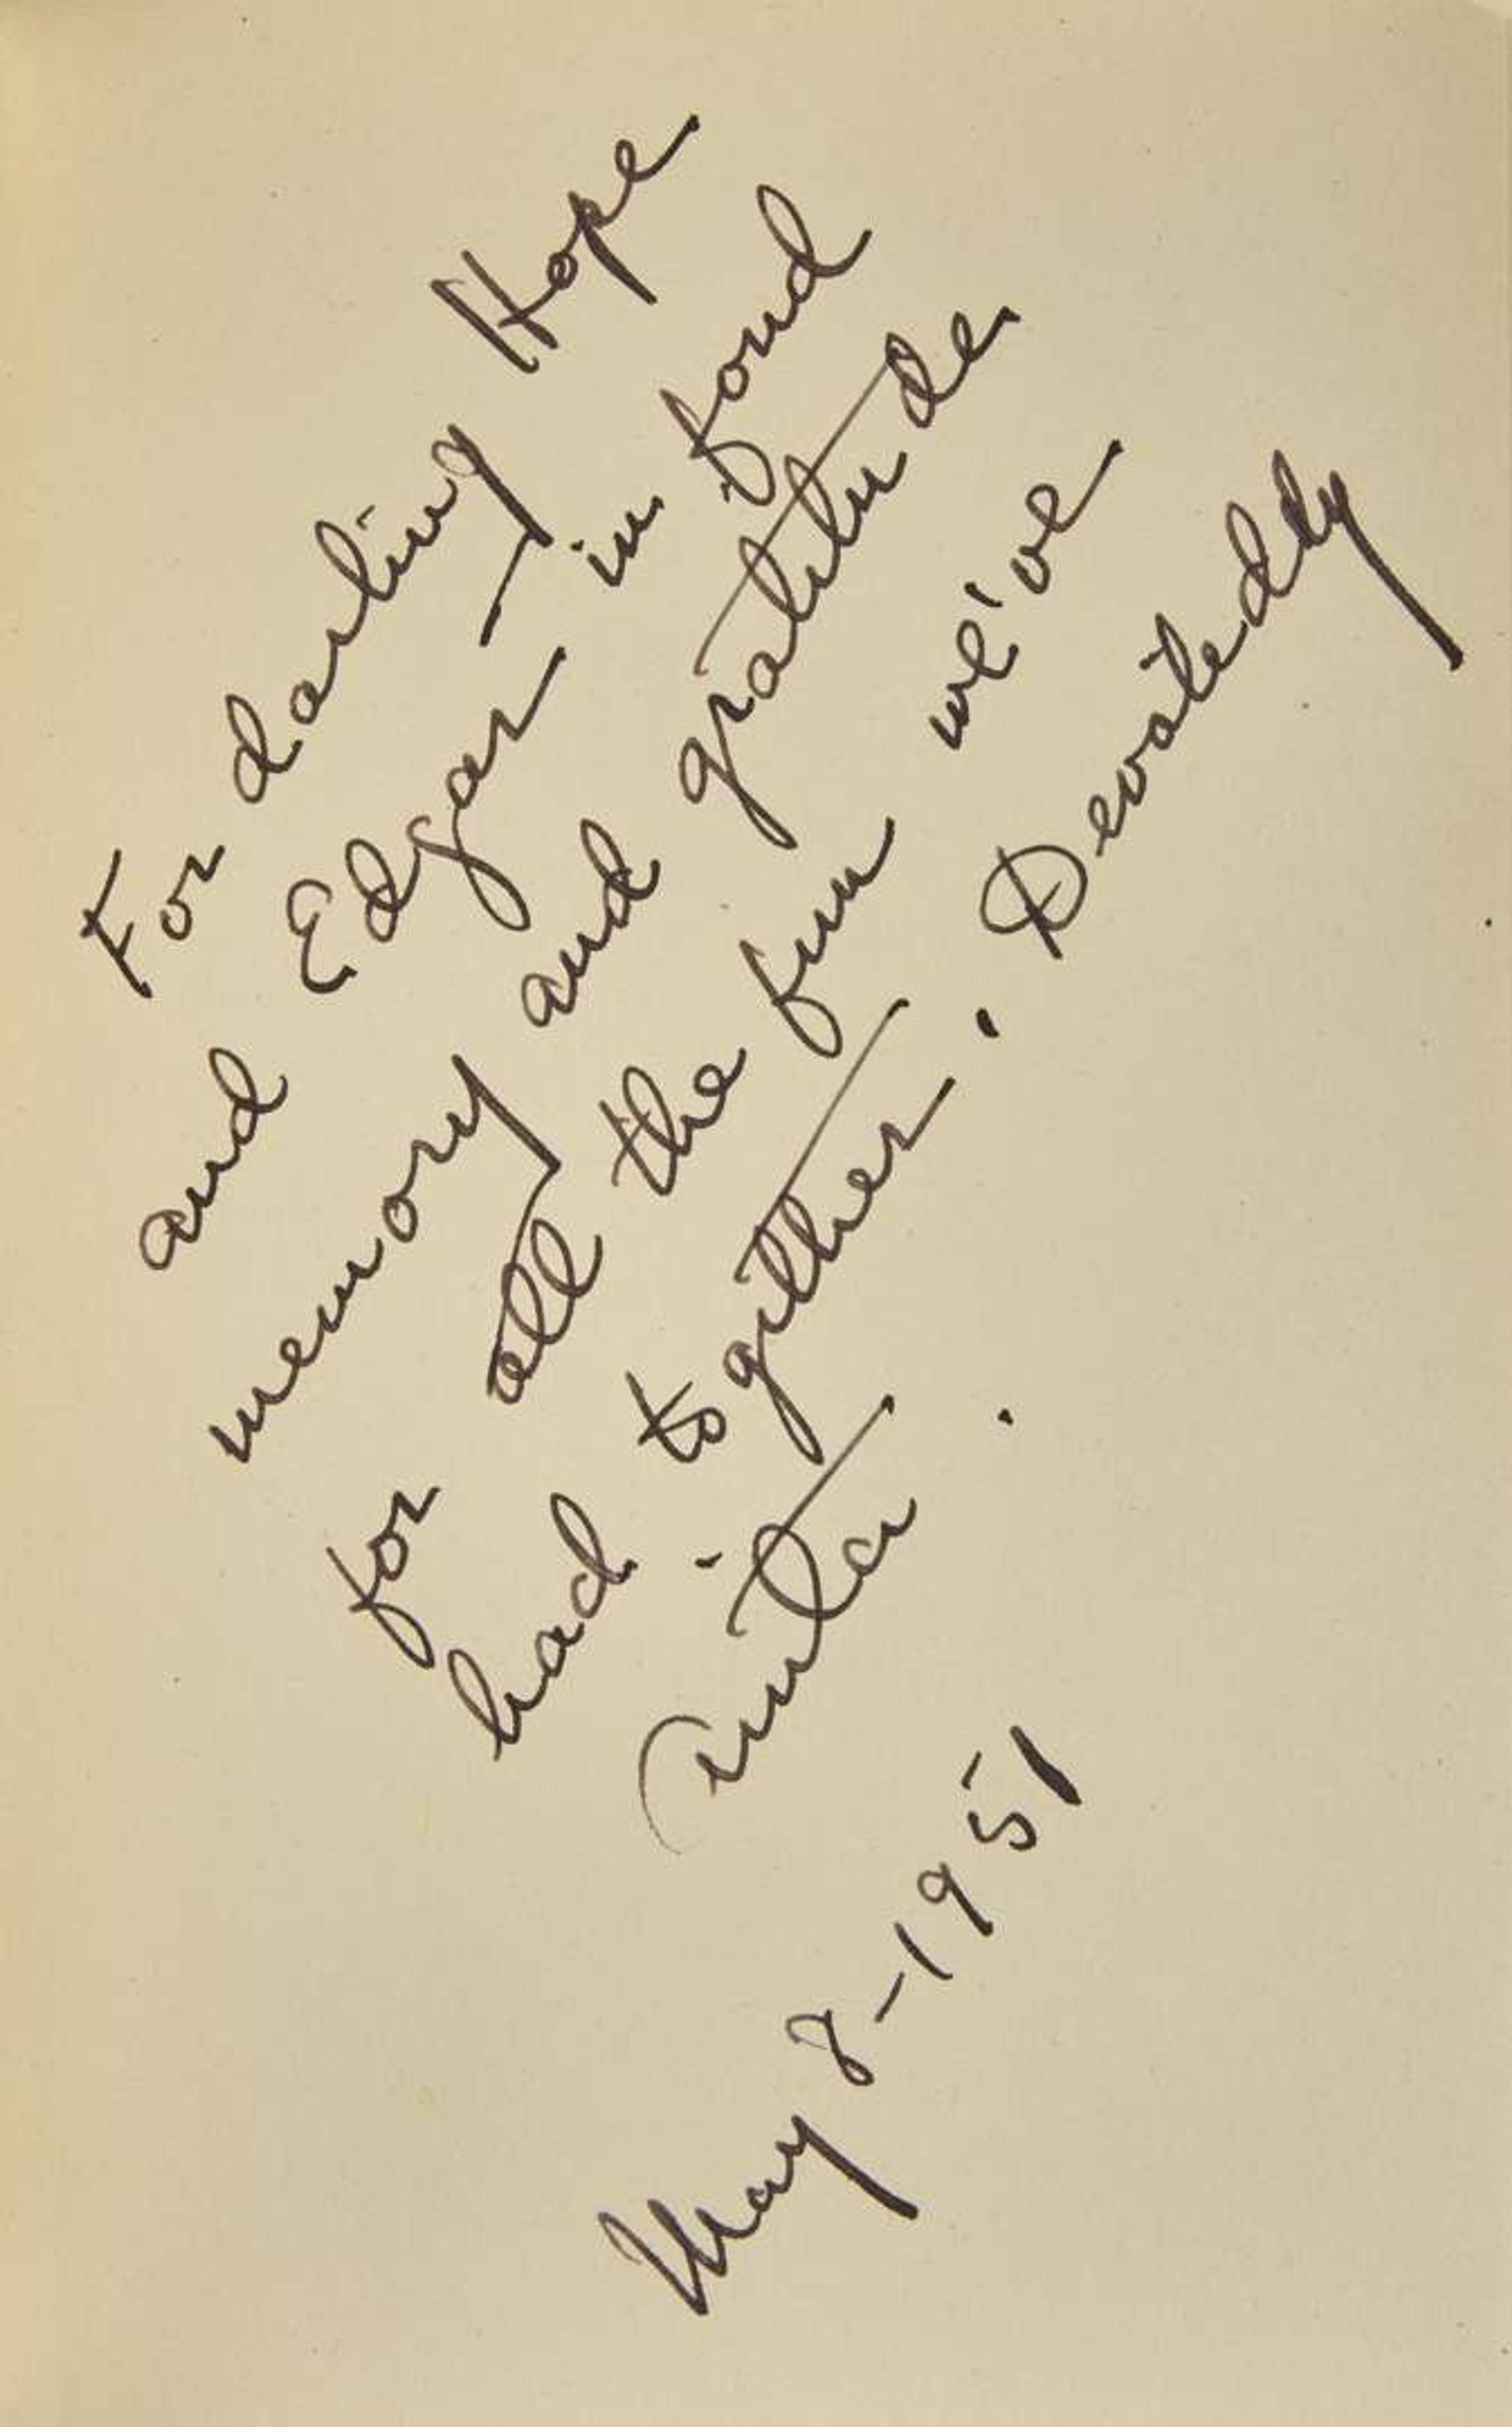 For darling Hope
and Edgar — in fond
memory and gratitude
for all the fun we've
had together. Devotedly
Anita.
May 8-1951